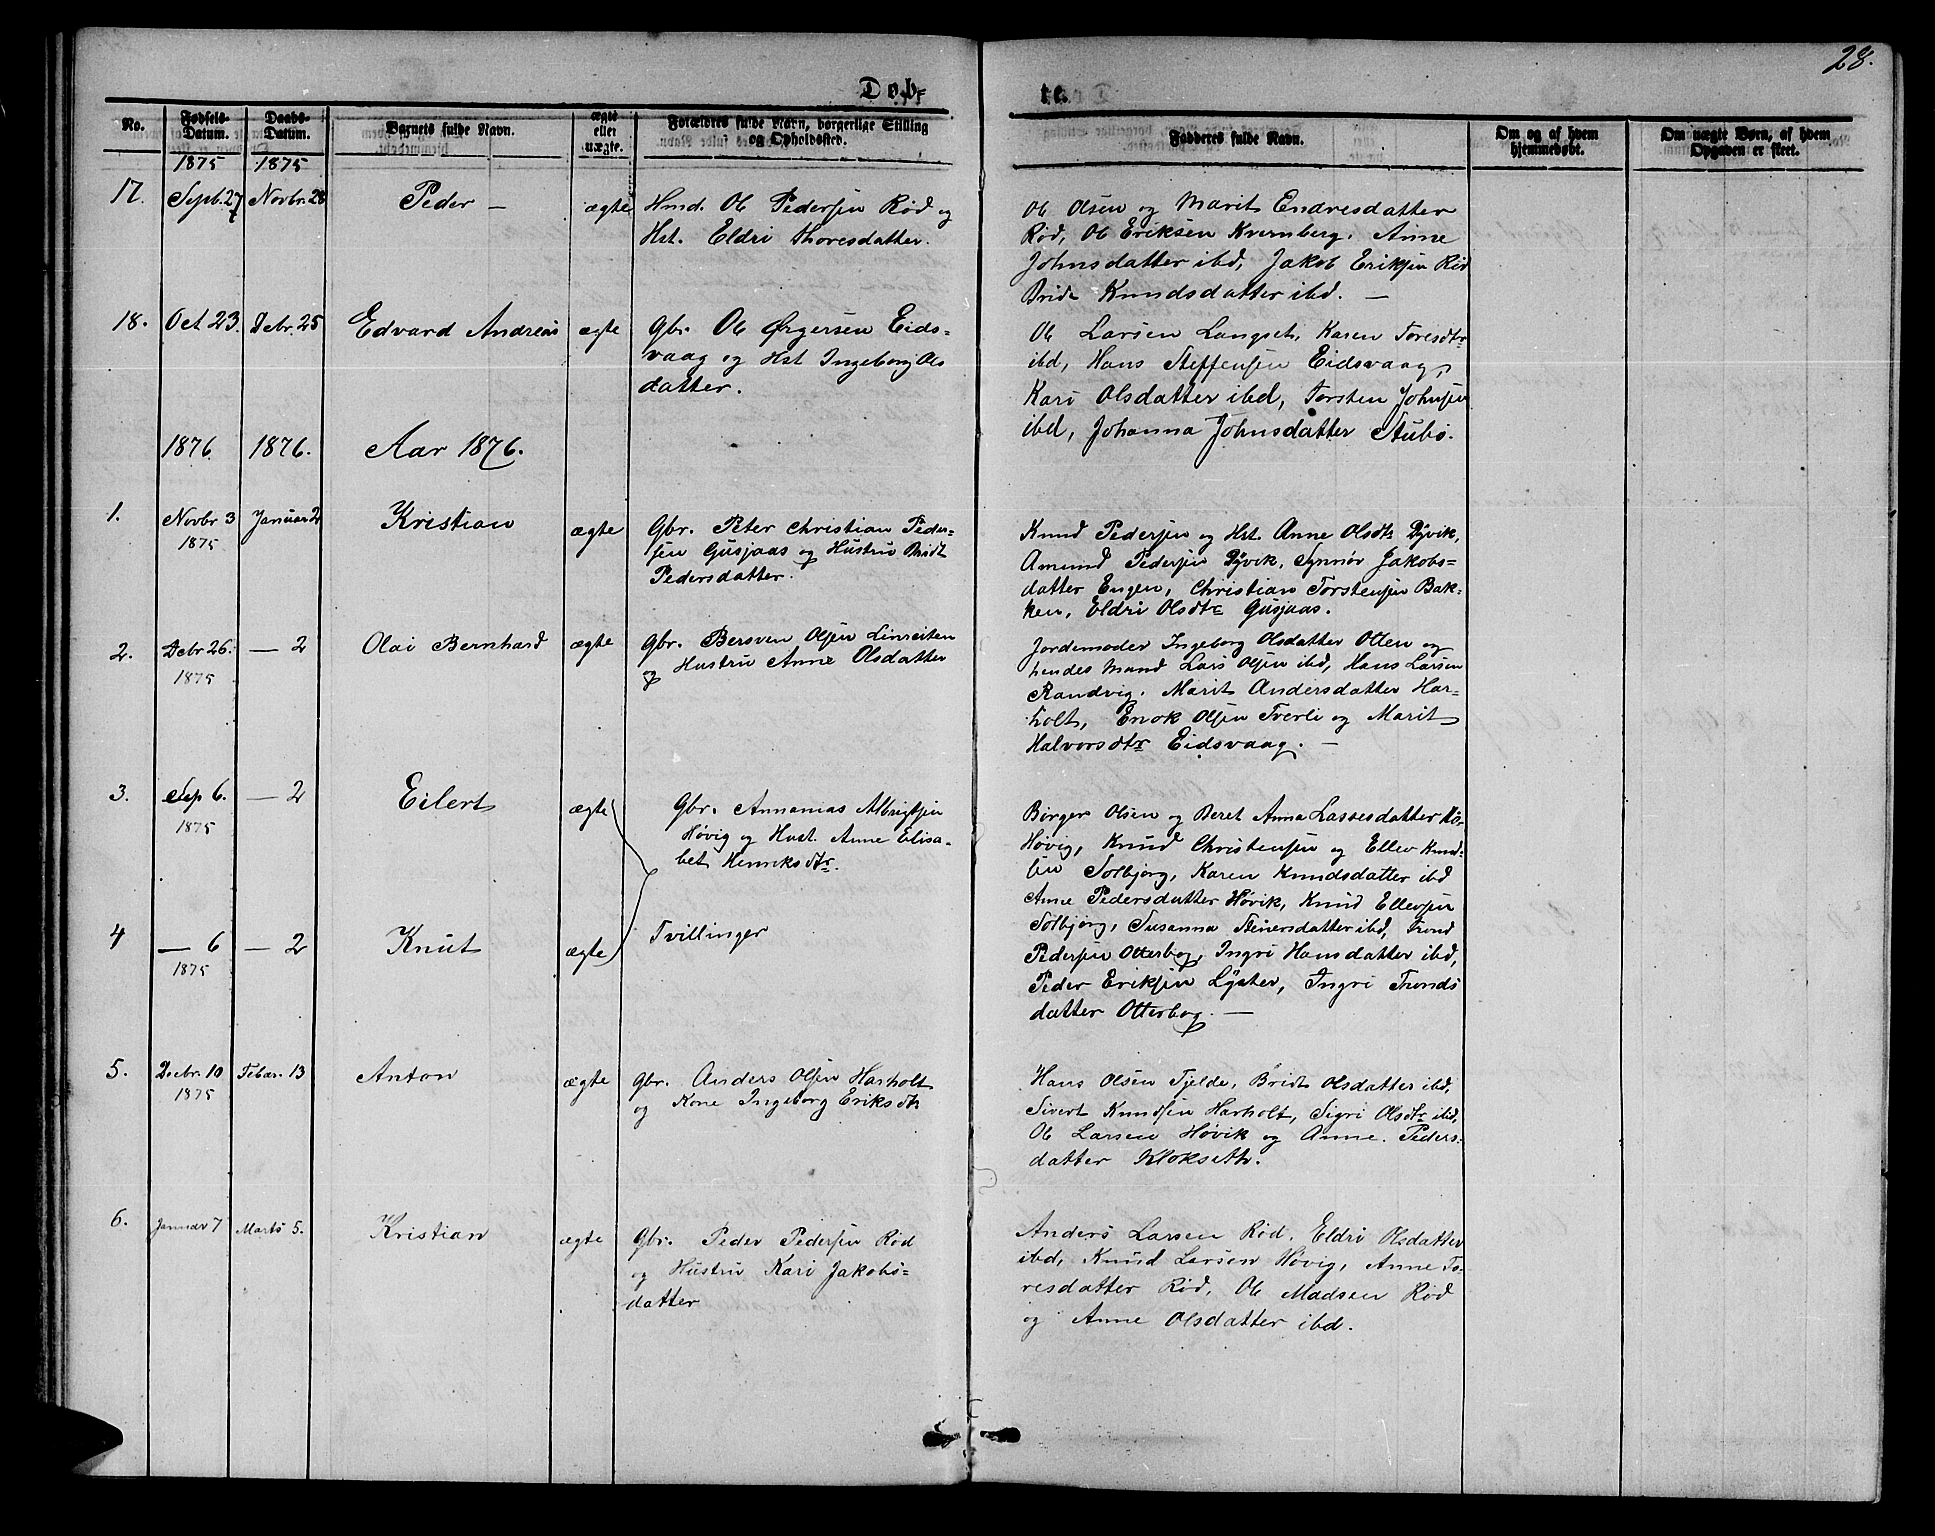 28.
Døb-
te.
No. Fødsels-Datum. Daabs-Datum. Barnets fulde Navn. ægte eller uægte. Forældres fulde Navn, borgerlige Stilling og Opholdssted. Fadderes fulde Navn. Om og af hvem hjemmedøbt. Om uægte Børn, af hvem Opgaven er skeet.
1875 1875
17. Septb. 27 Novbr. 28 Peder – ægte
Hmd. Ole Pedersen Rød og
Hst. Eldri Thoresdatter.
Ole Olsen og Marit Endresdatter
Rød, Ole Eriksen Kvernberg, Anne
Johnsdatter ibd, Jakob Eriksen Rød
Bridt Knudsdatter ibd. —
18. Oct 23. Debr. 25 Edvard Andreas ægte
Gbr. Ole Ørgersen Eids-
vaag og Hst Ingeborg Ols
datter.
Ole Larsen Langset, Karen Toresdtr
ibd, Hans Steffensen Eidsvaag,
Kari Olsdatter ibd, Torsten Johnsen
ibd, Johanna Johnsdatter Stubø.
1876 1876. Aar 1876.
1. Novbr 3 1875 Januar 2 Kristian ægte
Gbr. Peter Christian Peder-
sen Gusjaas og Hustru Bridt
Pedersdatter.
Knud Pedersen og Hst. Anne Olsdtr Dyvik,
Amund Pedersen Dyvik, Synnør Jakobs-
datter Engen, Christian Torstensen Bak-
ken, Eldri Olsdtr Gusjaas.
2. Debr 26. 1875 — 2 Olai Bernhard ægte
Gbr. Bersven Olsen Linseiten
og Hustru Anne Olsdatter
Jordemoder Ingeborg Olsdatter Otten og
hendes Mand Lars Olsen ibd, Hans Larsen
Randvig. Marit Andersdatter Har-
holt, Enok Olsen Tverli og Marit
Halvorsdtr Eidsvaag. —
3. Sep 6. 1875 — 2 Eilert ægte
Gbr. Annanias Albrigtsen
Høvig og Hust. Anne Elisa-
bet Henriksdtr.
Børger Olsen og Beret Anna Lassesdatter
Høvig, Knud Christensen og Ellev Knud-
sen Solbjørg, Karen Knudsdatter ibd
Anne Pedersdatter Høvik, Knud Ellevsen
Solbjørg, Susanna Steinersdatter ibd, Trond
Pedersen Otterbog, Ingri Hansdatter ibd,
Peder Eriksen Lyster, Ingri Tronds
datter Otterbog. —
4 — 6 1875 — 2 Knut ægte
Tvillinger
5. Decbr. 10 1875 Febar. 13 Anton ægte
Gbr. Anders Olsen Harholt
og Kone Ingeborg Eriksdtr
Hans Olsen Tjelde, Bridt Olsdatter ibd,
Sivert Knudsen Harholt, Sigri Olsdtr ibd,
Ole Larsen Høvik og Anne Peders-
datter Klokseth.
6. Januar 7 Marts 5. Kristian ægte
Gbr. Peder Pedersen Rød
og Hustru Kari Jakobs-
datter
Anders Larsen Rød. Eldri Olsdatter
ibd, Knud Larsen Høvig, Anne To-
resdatter Rød, Ole Madsen Rød
og Anne Olsdatter ibd.